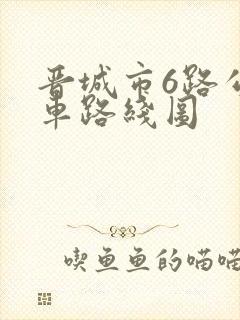 晋城市6路公
車路綫图
喫鱼鱼的喵喵